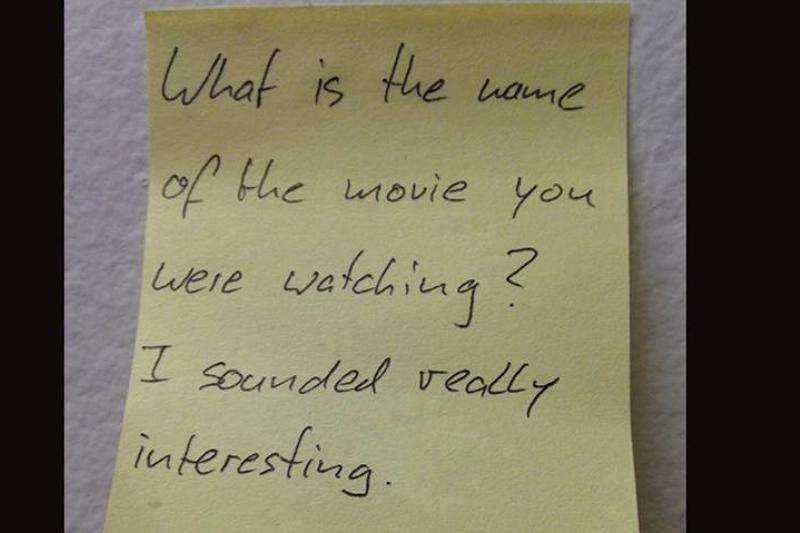 What is the name
of the movie you
were watching?
I sounded really
interesting.